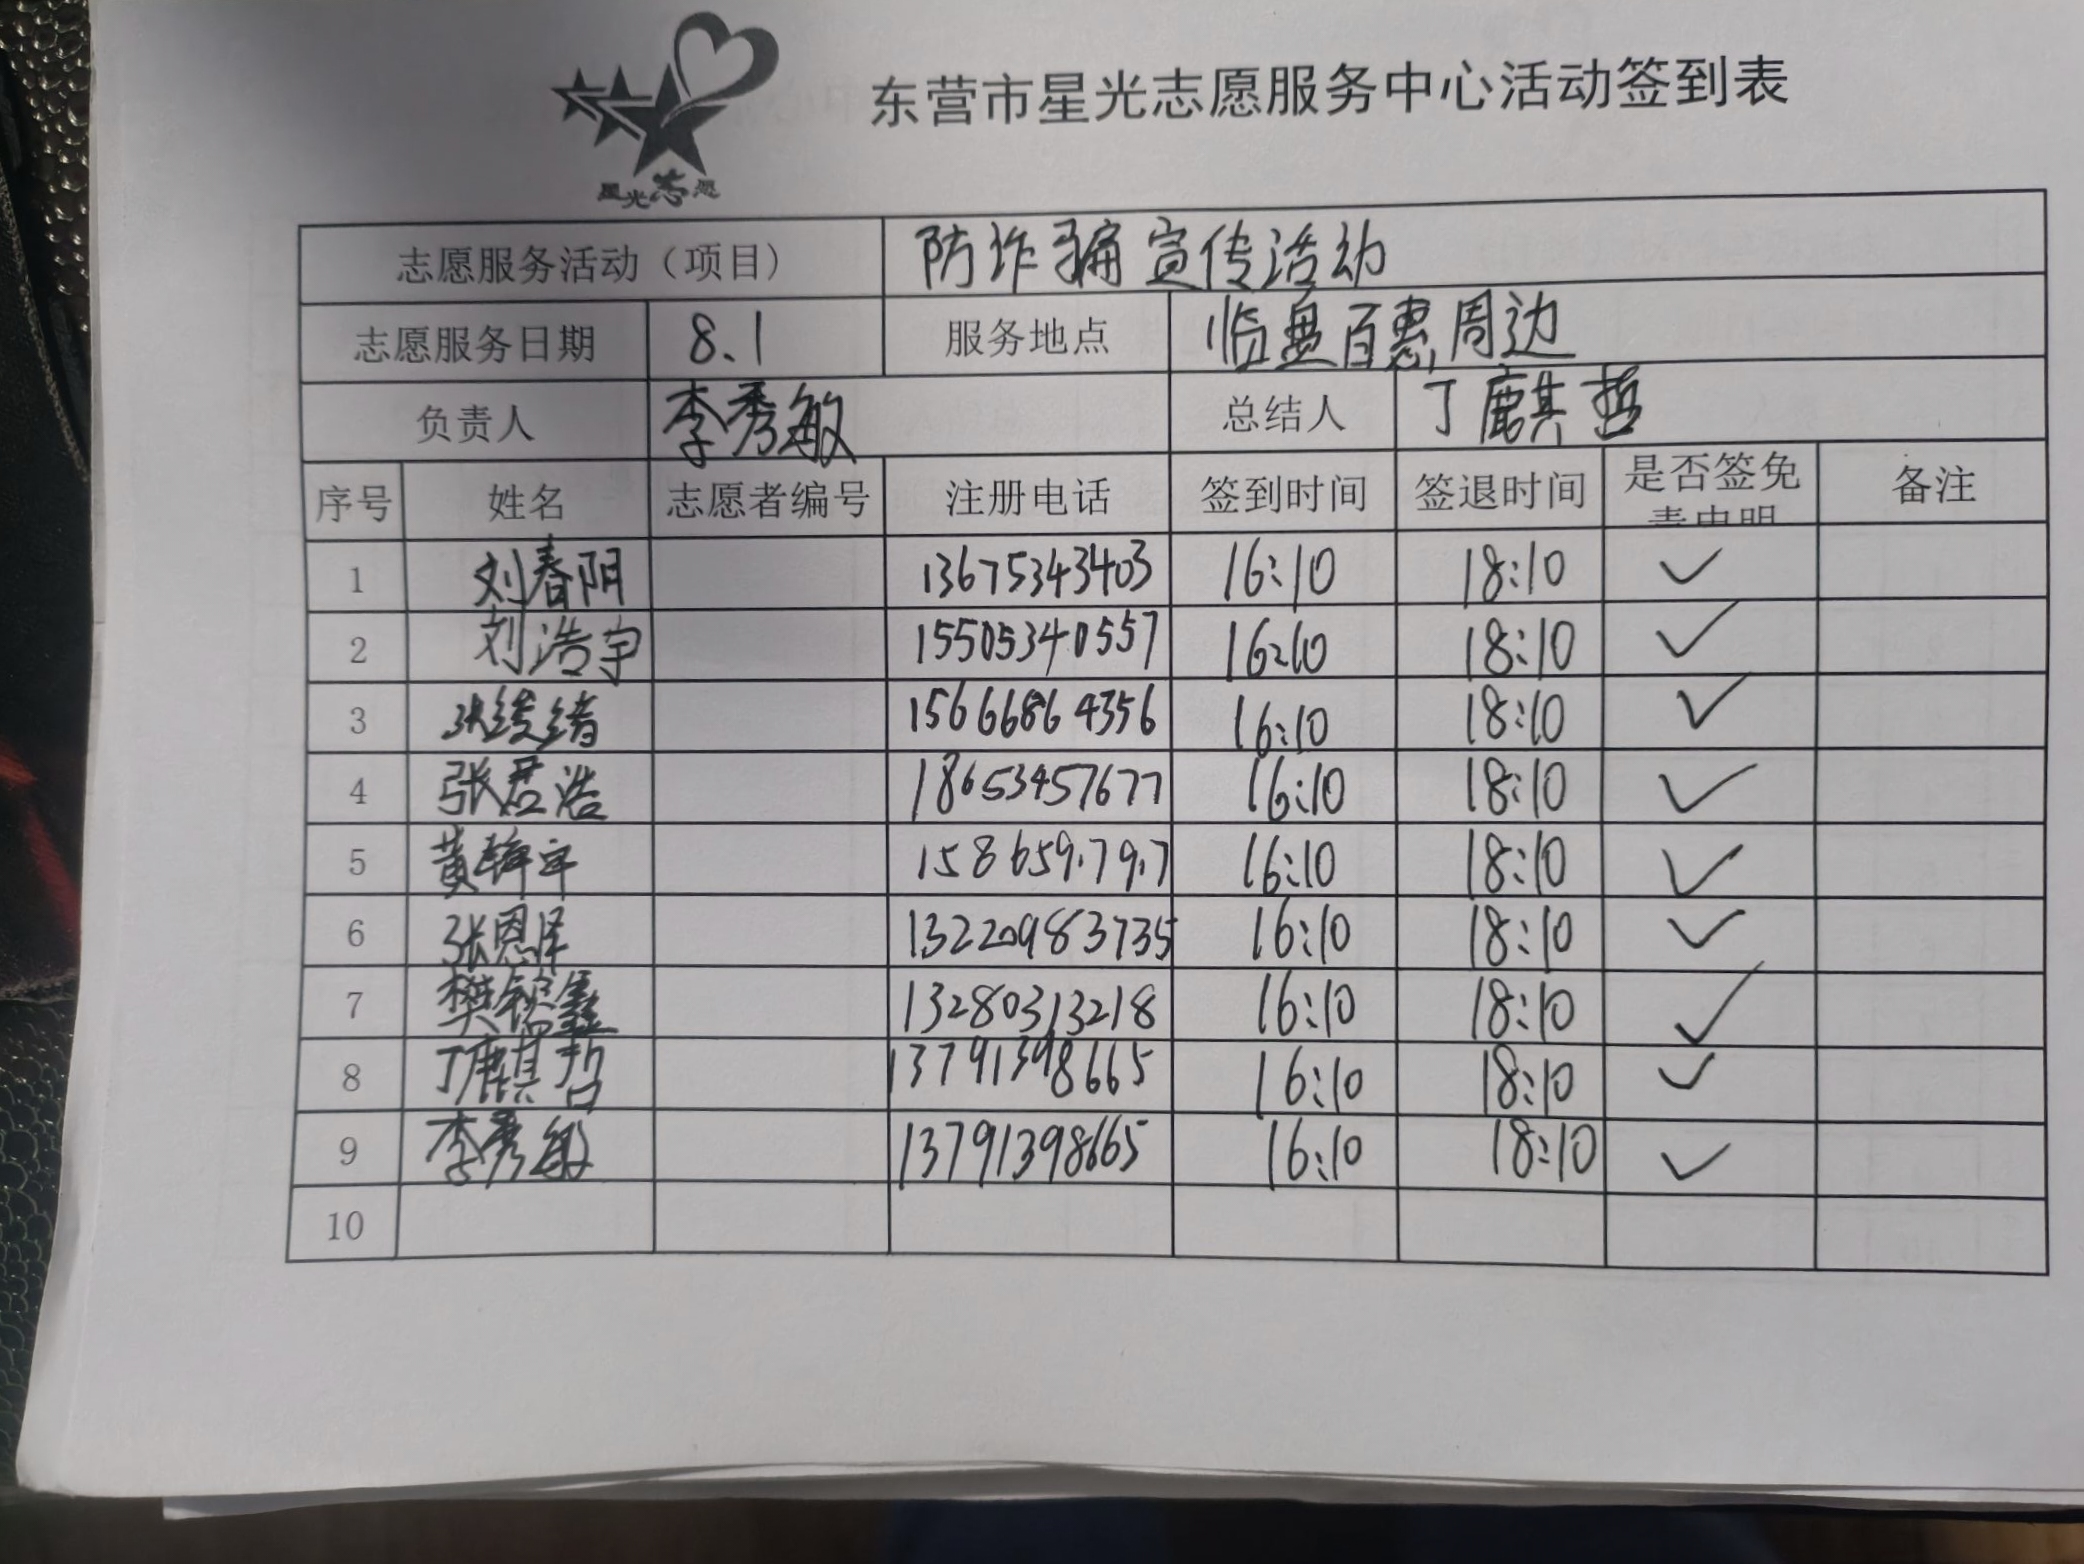 星光志愿
东营市星光志愿服务中心活动签到表
志愿服务活动（项目） 防诈骗宣传活动
志愿服务日期 8.1 服务地点 临盘百惠周边
负责人 李秀敏 总结人 丁麒哲
序号 姓名 志愿者编号 注册电话 签到时间 签退时间 是否签免责申明 备注
1 刘春阳 13675343403 16:10 18:10 ✓
2 刘浩宇 15505340557 16:10 18:10 ✓
3 张绪 15666864356 16:10 18:10 ✓
4 张君浩 18653457677 16:10 18:10 ✓
5 黄宇 158659.79.7 16:10 18:10 ✓
6 张恩泽 13220983735 16:10 18:10 ✓
7 樊鑫 13280313218 16:10 18:10 ✓
8 丁麒哲 13791398665 16:10 18:10 ✓
9 李秀敏 13791398665 16:10 18:10 ✓
10